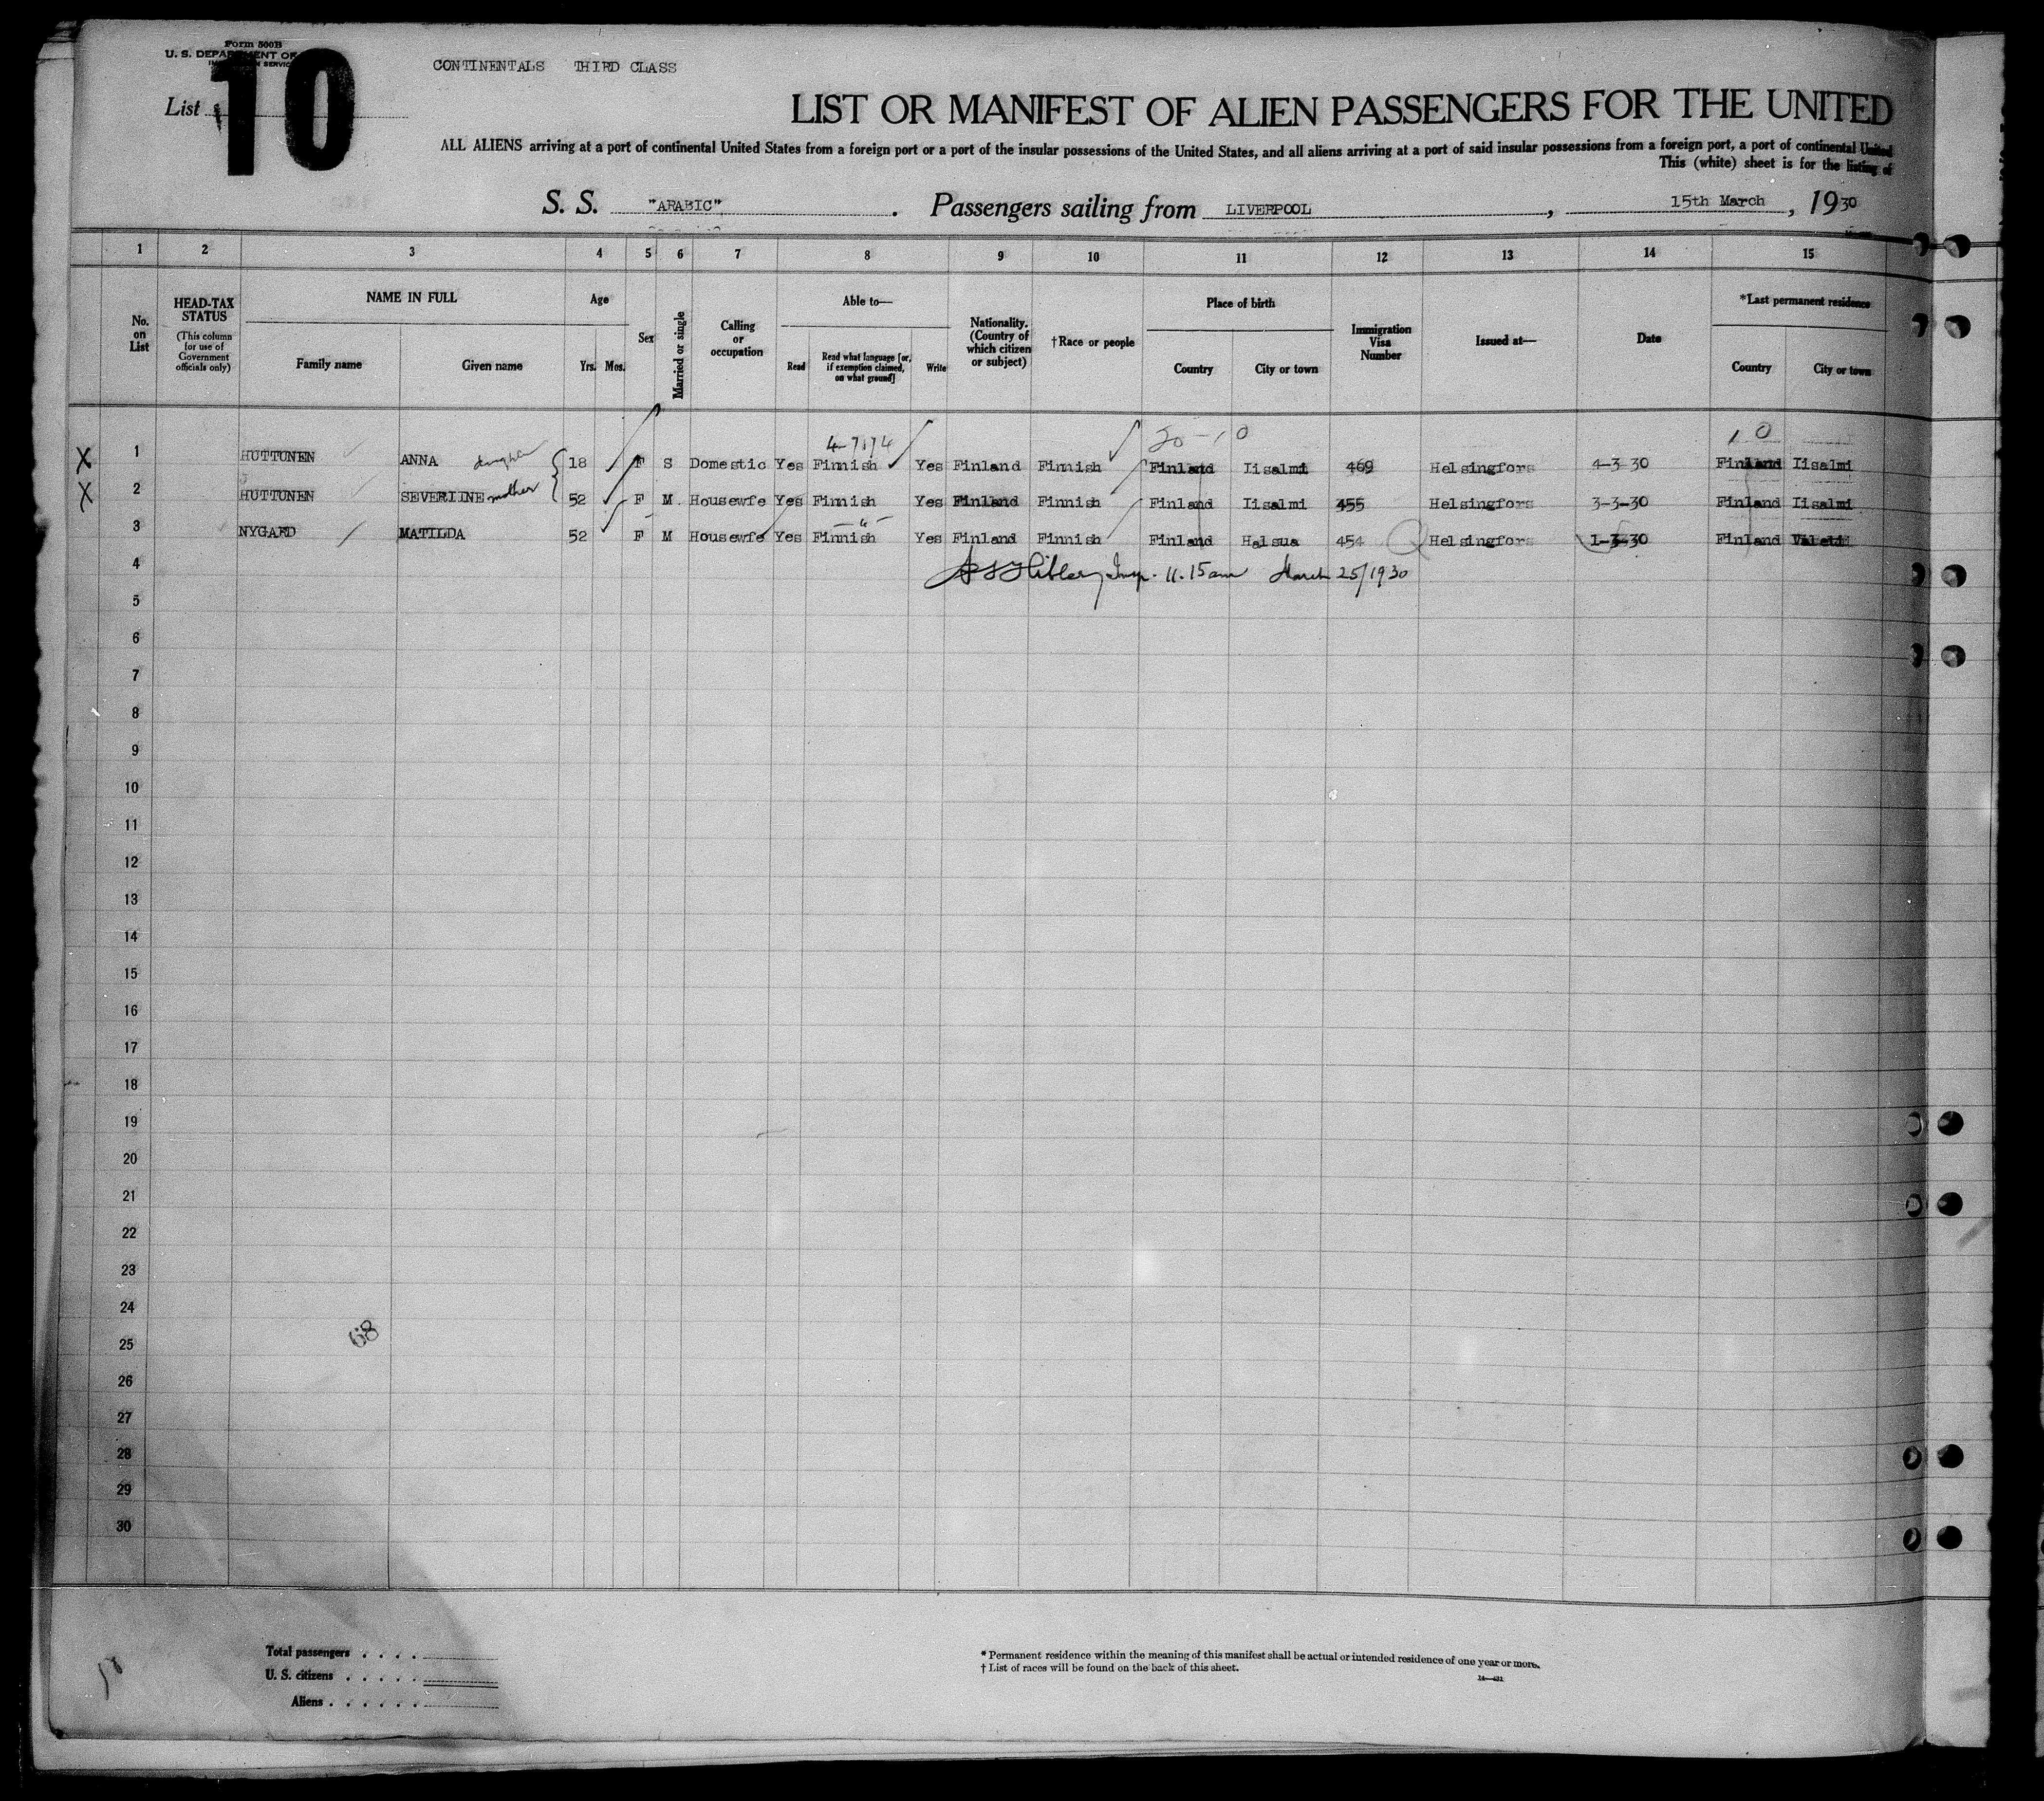 Form 500B
U. S. DEPARTMENT OF
10
List
CONTINENTALS THIRD CLASS
LIST OR MANIFEST OF ALIEN PASSENGERS FOR THE UNITED
ALL ALIENS arriving at a port of continental United States from a foreign port or a port of the insular possessions of the United States, and all aliens arriving at a port of said insular possessions from a foreign port, a port of continental United
This (white) sheet is for the listing of
S. S. "ARABIC". Passengers sailing from LIVERPOOL, 15th March, 1930
1 2 3 4 5 6 7 8 9 10 11 12 13 14 15
No. on List
HEAD-TAX STATUS
(This column for use of Government officials only)
NAME IN FULL
Family name
Given name
Age
Yrs. Mos.
Sex
Married or single
Calling or occupation
Able to—
Read
Read what language [or, if exemption claimed, on what ground]
Write
Nationality. (Country of which citizen or subject)
†Race or people
Place of birth
Country
City or town
Immigration Visa Number
Issued at—
Date
*Last permanent residence
Country
City or town
1 HUTTUNEN ANNA daughter 18 F S Domestic Yes Finnish Yes Finland Finnish Finland Iisalmi 469 Helsingfors 4-3-30 Finland Iisalmi
2 HUTTUNEN SEVERIINE mother 52 F M Housewfe Yes Finnish Yes Finland Finnish Finland Iisalmi 455 Helsingfors 3-3-30 Finland Iisalmi
3 NYGARD MATILDA 52 F M Housewfe Yes Finnish Yes Finland Finnish Finland Halsua 454 Helsingfors 1-3-30 Finland
4 Insp. 11.15 am March 25/1930
5
6
7
8
9
10
11
12
13
14
15
16
17
18
19
20
21
22
23
24
25
68
26
27
28
29
30
Total passengers . . . .
U. S. citizens . . . . .
Aliens . . . . . .
* Permanent residence within the meaning of this manifest shall be actual or intended residence of one year or more.
† List of races will be found on the back of this sheet.